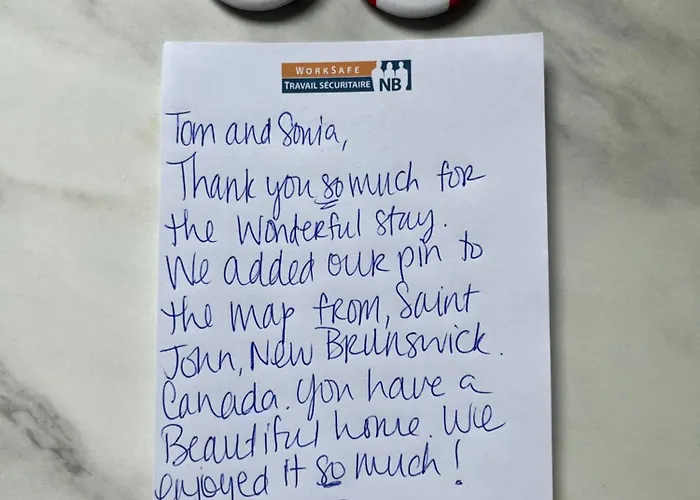 WORKSAFE
TRAVAIL SÉCURITAIRE NB
Tom and Sonia,
Thank you so much for
the wonderful stay.
We added our pin to
the map from, Saint
John, New Brunswick.
Canada. You have a
Beautiful home. We
enjoyed it so much!